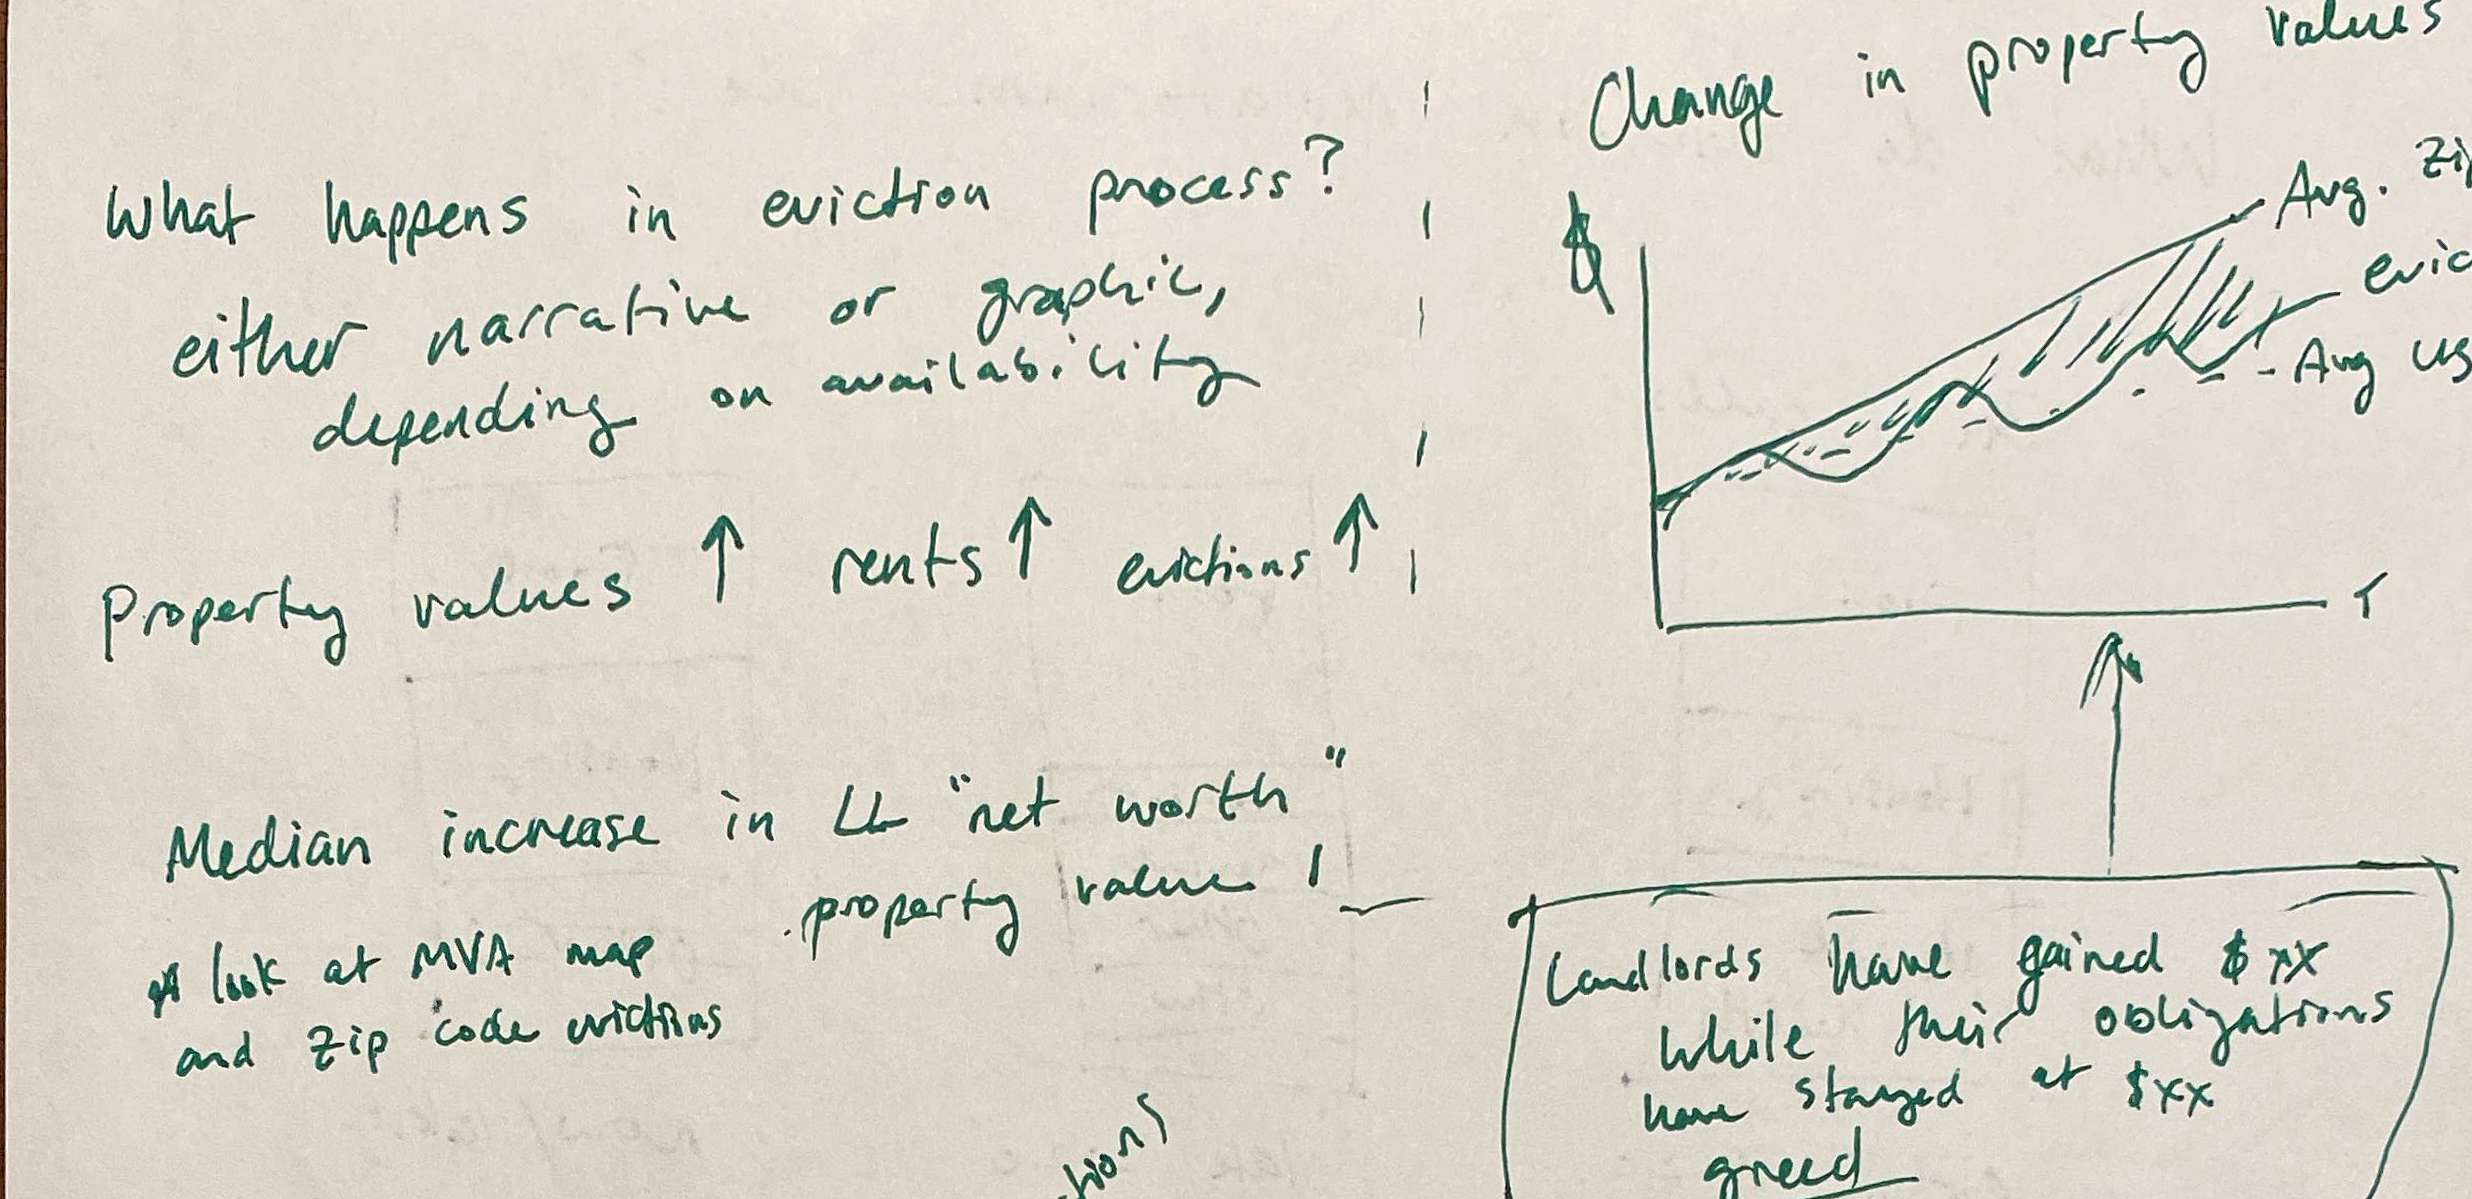 What happens in eviction process?
either narrative or graphic,
depending on availability
Property values ↑ rents ↑ evictions ↑
Median increase in LL "net worth"
property value
look at MVA map
and zip code evictions
Change in property values
$
Avg.
Avg US
T
Landlords have gained $xx
while their obligations
have stayed at $xx
greed